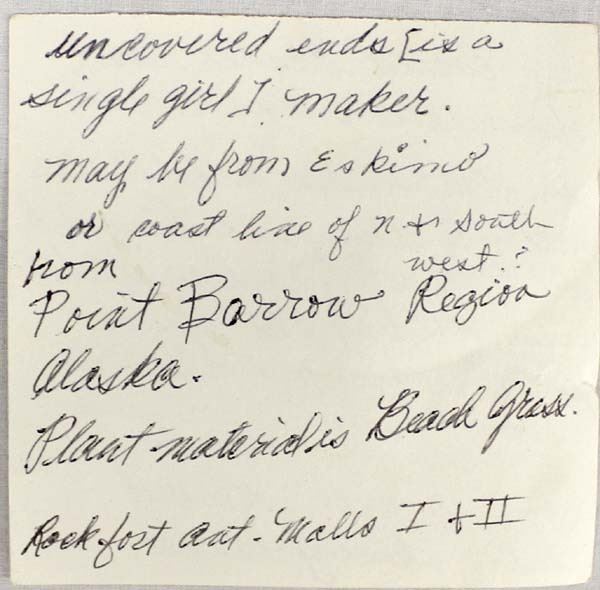 uncovered ends [is a
single girl I maker.
may be from Eskimo
or coast line of n + south
from west.?
Point Barrow Region
Alaska.
Plant material is Beach Grass.
Rockfost Ant. Malls I + II